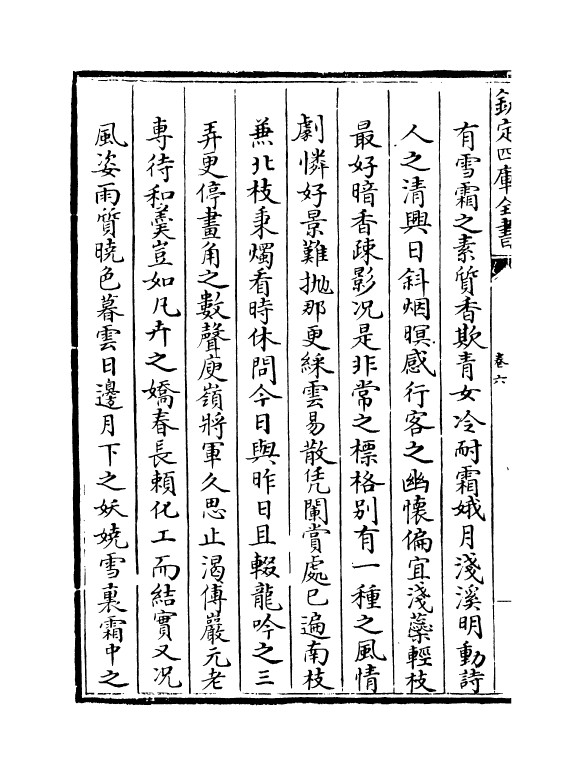 欽定四庫全書
卷六
有雪霜之素質香欺青女冷耐霜娥月淺溪明動詩
人之清興日斜烟暝感行客之幽懷偏宜淺蘂輕枝
最好暗香疎影况是非常之標格别有一種之風情
劇憐好景難抛那更綵雲易散凭闌賞處已遍南枝
兼北枝秉燭看時休問今日與昨日且輟龍吟之三
弄更停畫角之數聲庾嶺將軍久思止渴傅巖元老
專待和羮豈如凡卉之嬌春長賴化工而結實又况
風姿雨質曉色暮雲日邊月下之妖嬈雪裏霜中之